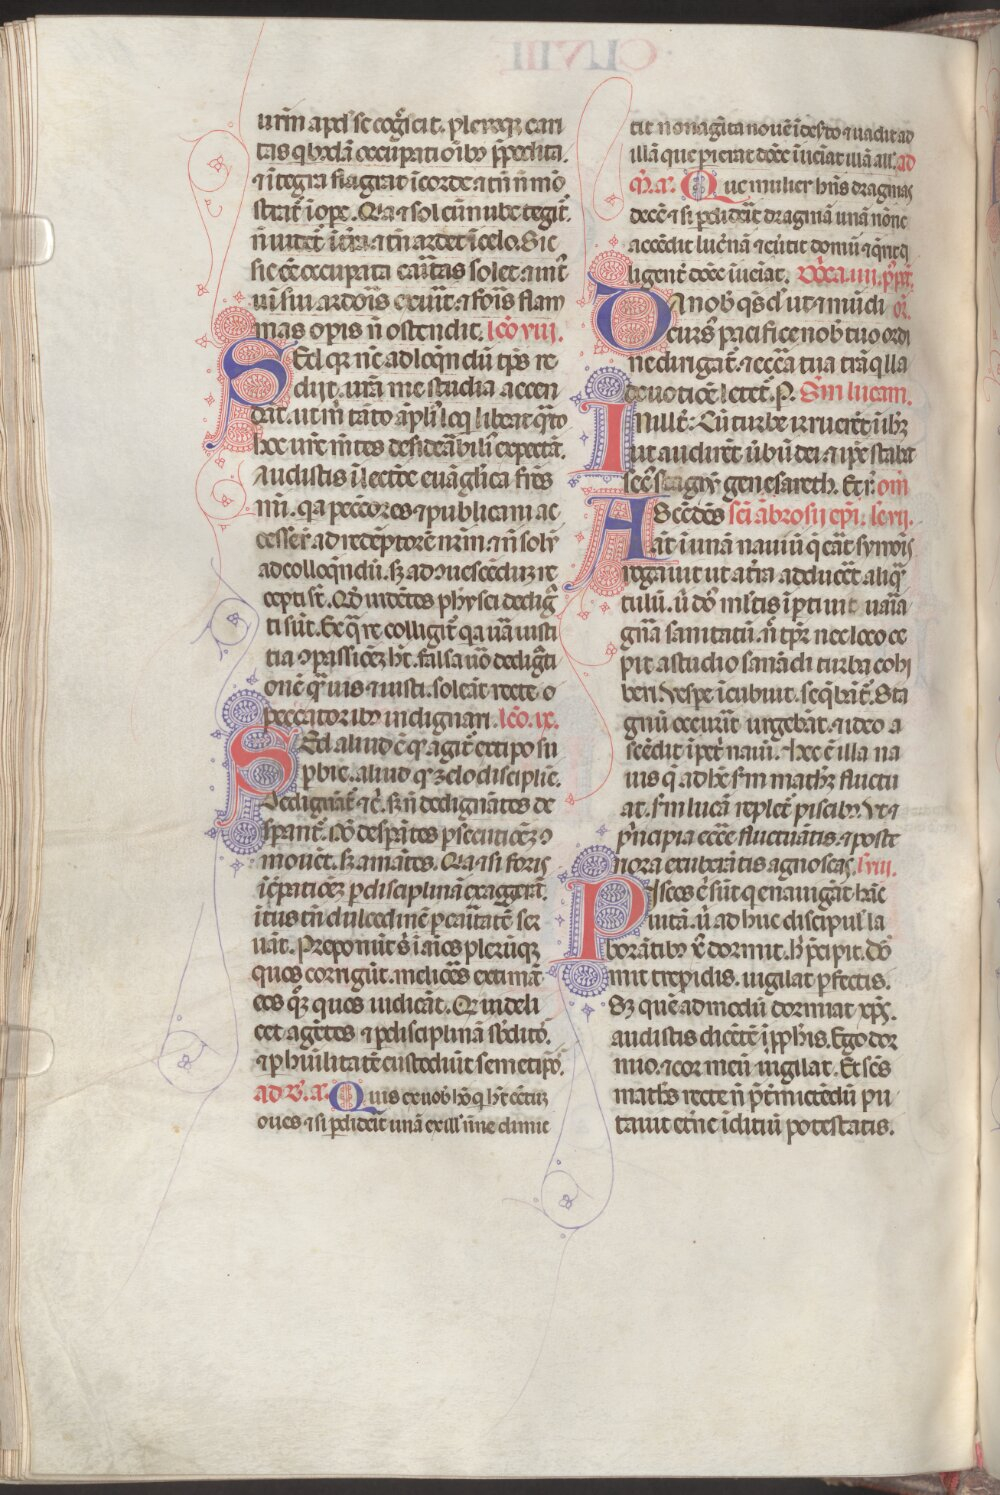 urm̄ apd̓ se cogͦscit. pleruqꝫ cari
tas qͥbꝰdā occupatioībꝰ p̄pedita.
⁊ īteg̃ flagrat ī corde ⁊ tn̄ n̄ mō
strat̄ ī ope. Qꝛ ⁊ sol cū nube tegit̄.
n̄ uidet̄ ī tr̄a ⁊ tn̄ ardet ī celo. Sic
sic ē occupata caritas solet. ⁊ int̄
uim sui ardoris exurit. ⁊ foris flam
mas opis n̄ ostendit. lcō viii.
Sed qꝛ nc̄ ad loqͦndū tp̄s re
dijt. urā me studia accen
dūt. ut m̄ tāto āpliꝰ loqͥ libeat qͣto
hec ur̄e m̄tes desid̓abiliꝰ expectāt.
Audistis ī lectiōe euāglica fr̄es
mī. qꝛ pec̄cores ⁊ publicani ac
cesser̄t ad redēptorē nr̄m. ⁊ n̄ solū
ad colloqͦndū. sꝫ ad ꝯuescēdū re
cepti st̄. Qd̓ uidētes pharisei dedigͣ
ti sūt. Ex qͣ re colligit̄ qꝛ uā iusti
tia ꝯpassiōeꝫ hꝫt. falsa uō dedigͣti
onē qͣuis ⁊ iusti. soleāt recte
peccatoribꝰ indignari. lcō. ix.
Sed aliud ē qꝛ agit̄ ex tipo su
pbie. aliud qꝛ zelo discipline.
Dedignāt̄ eī. sꝫ n̄ dedignātes de
spant̄. sꝫ despātes psecutiōeꝫ ꝯ
mouēt. sꝫ amātes. Qꝛ ⁊ si foris
īcpatiōeꝫ p disciplinā exaggerāt.
ītus tn̄ dulcedinē p caritatē ser
uāt. Preponūt sꝰ ī aīo s pleruqꝫ
quos corrigūt. meliores extimāt
eos qͦꝫ quos iudicāt. Qꝛ uideli
cet agētes ⁊ p disciplinā sb̓ditos.
⁊ p humilitatē custodiūt semetipos.
ad b̄. a. Quis ex uob hō qͥ hꝫt cētuꝫ
oues ⁊ si pdidit unā ex ill̓ nn̄e dimit
tit nonagīta nouē ī deserto ⁊ uadit ad
illā que pierat donec īueniat illā all̓a. ad
m̄. a. Que mulier hn̄s dragmas
decē ⁊ si pdiderit dragmā unā nōne
accēdit lucn̄ā ⁊ euertit domū ⁊ qͥrit
ligent̄ donec īueniat. Dn̄ca. iiii. p̄ pt̄.
Da nob qͣs dn̄e ut ⁊ mūdi or̄.
curs̓ pacifice nob tuo ordi
ne dirigat̄. ⁊ eccl̓ia tua trāqͥlla
deuotiōe letet̄. P. Sm̄ lucam.
In ill̓ t̄. Cū turbe irruerēt ī ihꝫ
ut audirēt ūbū dei. ⁊ ip̄e stabat
sec̄s stagnū genesareth. Et r̄. om̄
Ascēdēs sc̄i ābrosij epī. lc. vii.
Ait ī unā nauiū qͥ erāt symonis
rogauit ut a tr̄a adducēt aliqͣ
tulū. ubi dō ml̓tis īptiuit uaria
gn̄a sanitatū. n̄ tp̄r nec loco ce
pit a studio sanādi turba cohi
beri. Vespe īcubuit. seqͥbāt̄. Sta
gnū occurrit urgebāt. ⁊ ideo a
scēdit ī pet̄ nauī. Hec ē illa na
uis q̄ adhc̄ sm̄ math̄ꝫ fluctu
at. sm̄ lucā replet̄ piscibꝰ. Vt ⁊
pͥncipia ecc̄e fluctuātis. ⁊ poste
riora exuberātis agnoscas. l. viii.
Pisces ē sūt q̄ enauigāt hāc
uitā. ū adhuc discipul̓ la
borātibꝰ x̄ dormit. h̄ pcipit. dor
mit trepidis. uigilat pfectis.
Sꝫ quēadmodū dormiat xp̄s.
audistis dicētē ī pph̄is. Ego dor
mio. ⁊ cor meū uigilat. Et scs̄
math̄s recte n̄ pt̄mictēdū pu
tauit et̄ne īditiū potestatis.